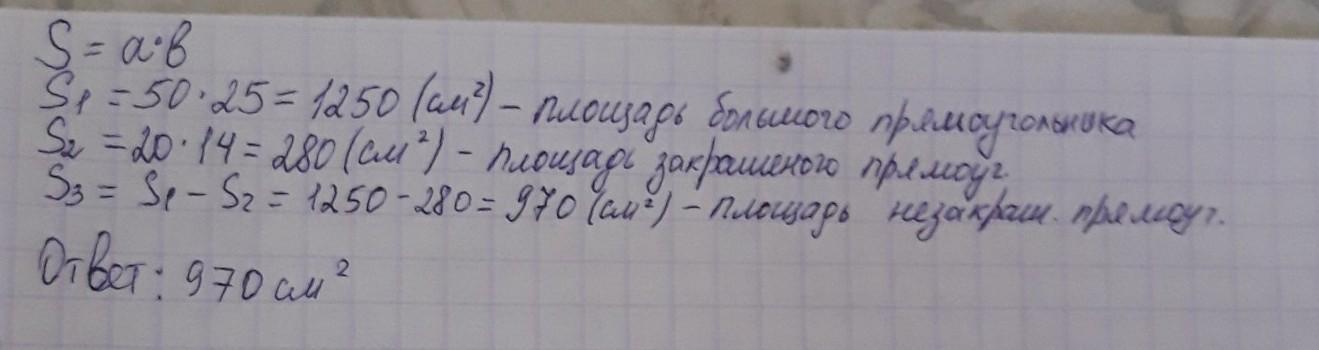 S = a·b
S₁ = 50 · 25 = 1250 (см²) – площадь большого прямоугольника
S₂ = 20 · 14 = 280 (см²) – площадь закрашеного прямоуг.
S₃ = S₁ – S₂ = 1250 - 280 = 970 (см²) – площадь незакраш. прямоуг.
Ответ: 970 см²